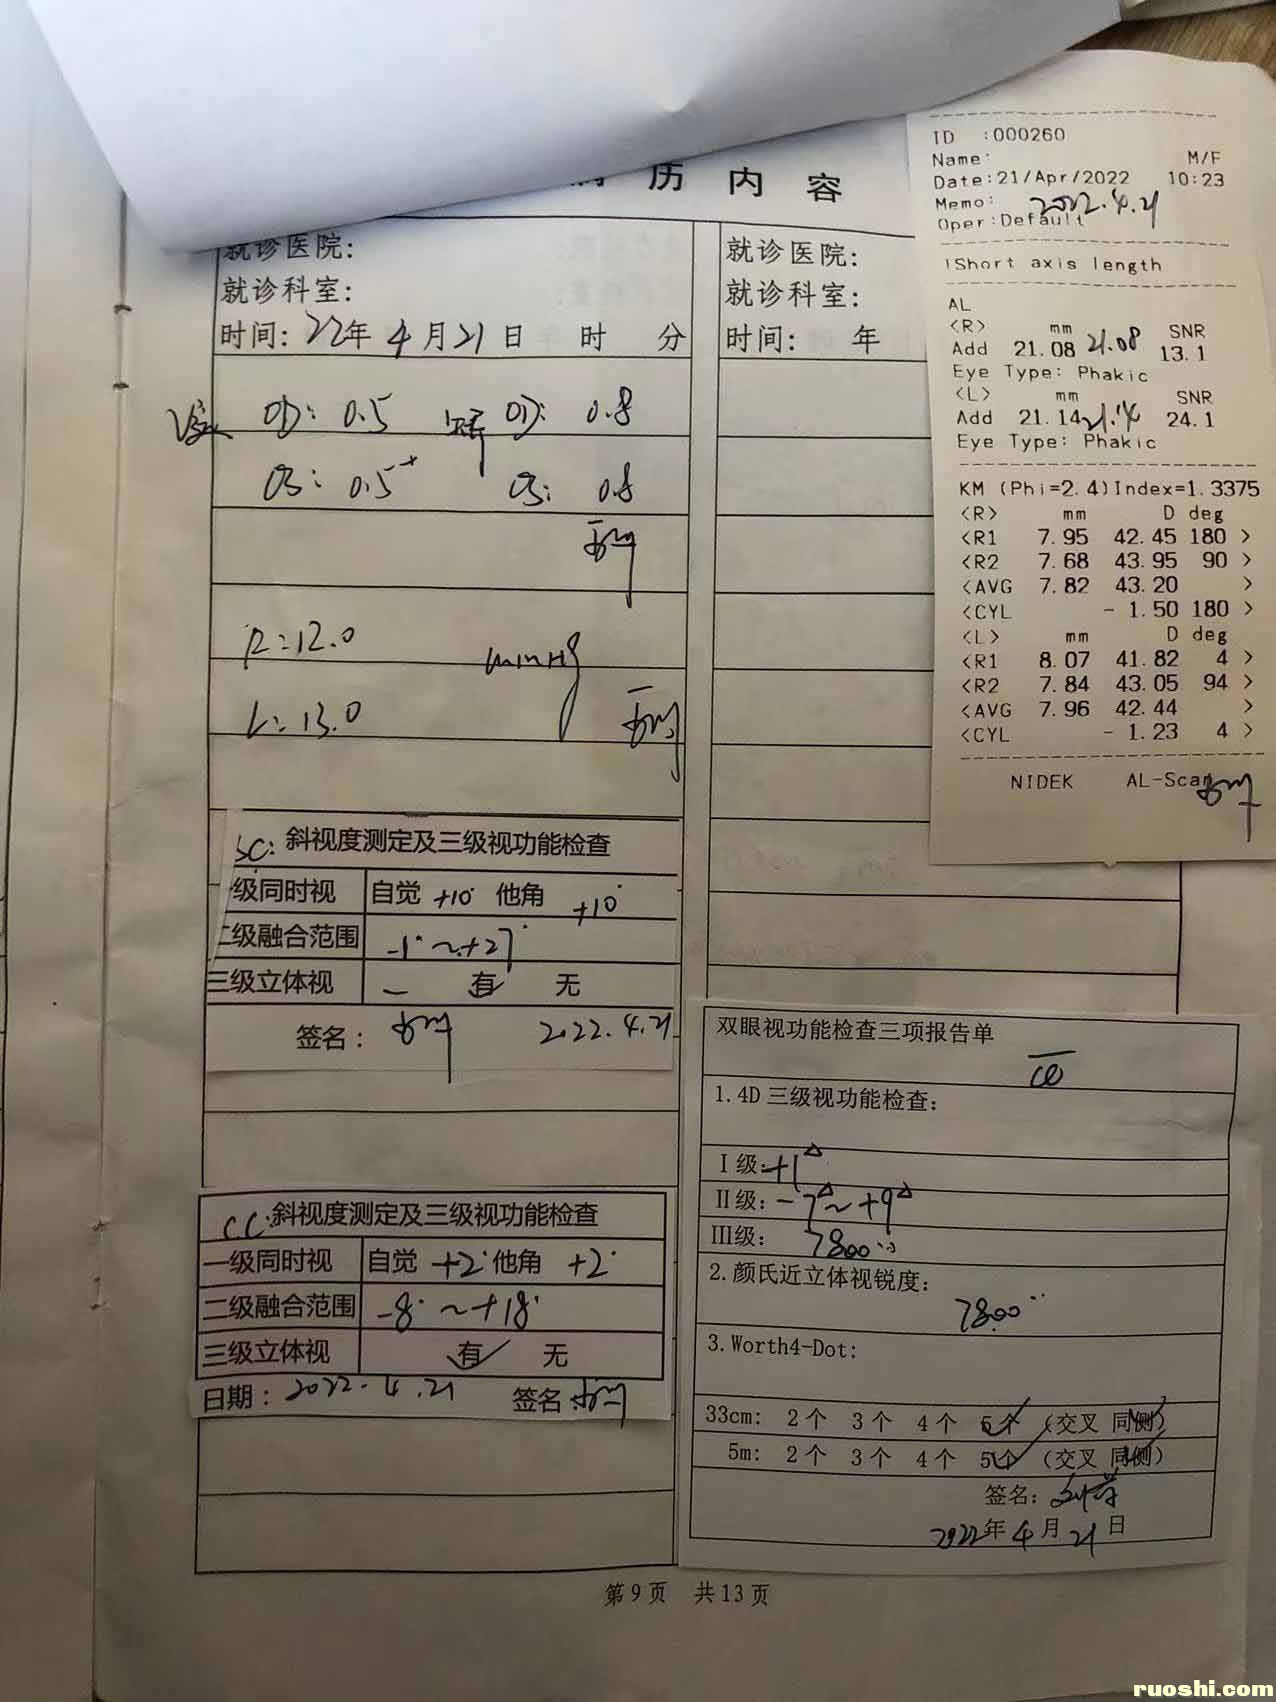 历 内 容
就诊医院:
就诊科室:
时间: 22年 4月21日 时 分
OD: 0.5 OD: 0.8
OS: 0.5+ OS: 0.8
R:12.0
mmHg
L:13.0
SC: 斜视度测定及三级视功能检查
级同时视 自觉 +10° 他角 +10°
二级融合范围 -1°~+27°
三级立体视 有 无
签名: 2022.4.21
CC: 斜视度测定及三级视功能检查
一级同时视 自觉 +2° 他角 +2°
二级融合范围 -8°~+18°
三级立体视 有 无
日期: 2022.4.21 签名:
就诊医院:
就诊科室:
时间: 年
ID :000260
Name: M/F
Date:21/Apr/2022 10:23
Memo: 2022.4.21
Oper:Default
!Short axis length
AL
<R> mm SNR
Add 21.08 21.08 13.1
Eye Type: Phakic
<L> mm SNR
Add 21.14 21.14 24.1
Eye Type: Phakic
KM (Phi=2.4)Index=1.3375
<R> mm D deg
<R1 7.95 42.45 180 >
<R2 7.68 43.95 90 >
<AVG 7.82 43.20 >
<CYL - 1.50 180 >
<L> mm D deg
<R1 8.07 41.82 4 >
<R2 7.84 43.05 94 >
<AVG 7.96 42.44 >
<CYL - 1.23 4 >
NIDEK AL-Scan
双眼视功能检查三项报告单
1.4D 三级视功能检查:
I 级: +1△
II级: -7△~+9△
III级: 7800"
2.颜氏近立体视锐度:
7800"
3.Worth4-Dot:
33cm: 2个 3个 4个 5个 (交叉 同侧)
5m: 2个 3个 4个 5个 (交叉 同侧)
签名:
2022年 4月 21日
第9页 共13页
ruoshi.com